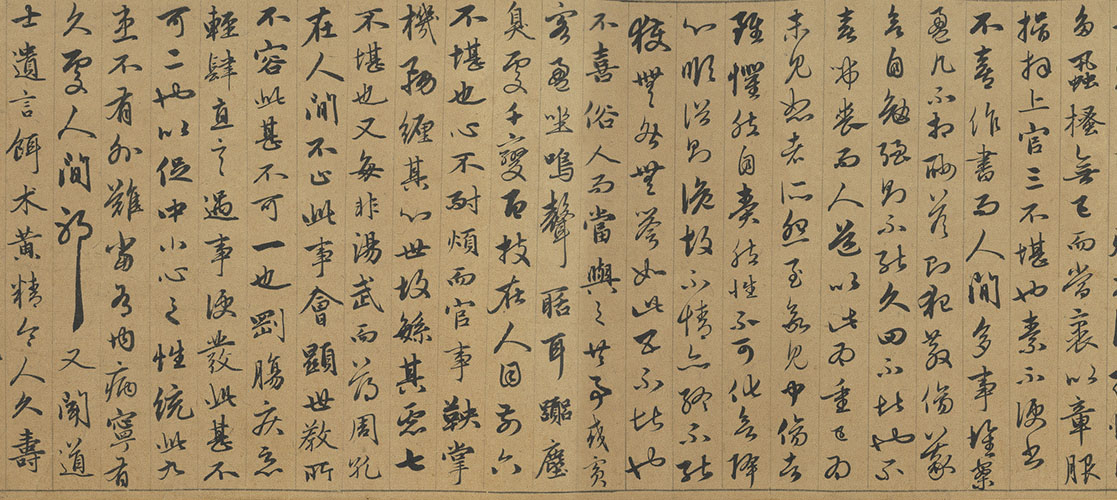 多蝨搔無已而當裹以章服
揖拜上官三不堪也素不便書
不喜作書而人間多事堆案
盈几不相酬答則犯教傷義
欲自勉強則不能久四不堪也不
喜弔喪而人道以此為重已為
未見恕者所怨至欲見中傷者
雖懼然自責然性不可化欲降
心順俗則詭故不情亦終不能
獲無咎無譽如此五不堪也
不喜俗人而當與之共事或賓
客盈坐鳴聲聒耳囂塵
臭處千變百技在人目前六
不堪也心不耐煩而官事鞅掌
機務纏其心世故繁其慮七
不堪也又每非湯武而薄周孔
在人間不止此事會顯世教所
不容此甚不可一也剛腸疾惡
輕肆直言遇事便發此甚不
可二也以促中小心之性統此九
患不有外難當有內病寧有
久處人間邪又聞道
士遺言餌朮黃精令人久壽